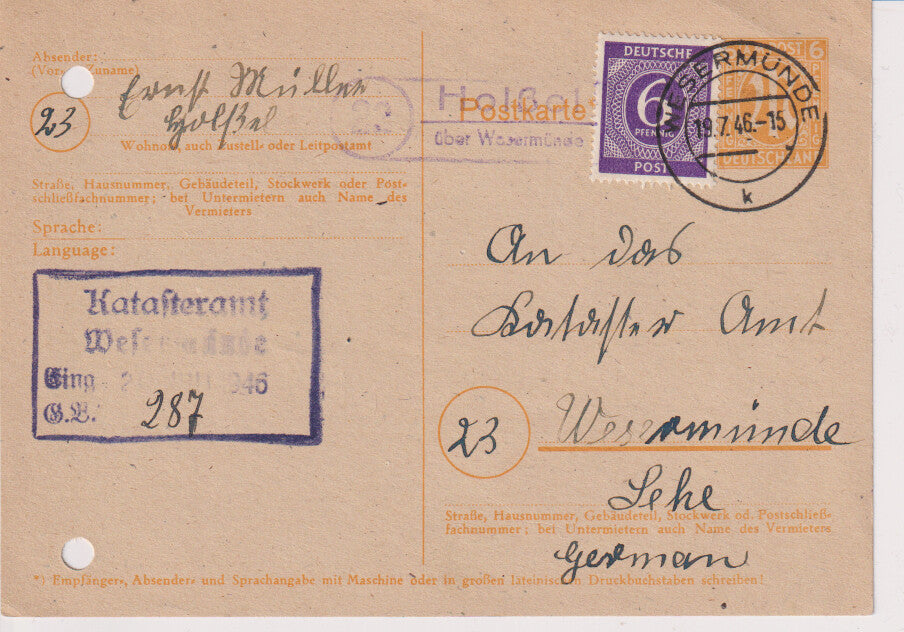 Absender:
(Vor- u. Zuname)
Ernst Müller
23
Holßel
Wohnort, auch Zustell- oder Leitpostamt
Straße, Hausnummer, Gebäudeteil, Stockwerk oder Post-
schließfachnummer; bei Untermietern auch Name des
Vermieters
Sprache:
Language:
Katasteramt
Eing. 1946
G.B. 287
Holßel
über Wesermünde
Postkarte*
DEUTSCHE
6
PFENNIG
POST
WESERMÜNDE
19.7.46.-15
k
POST 6
DEUTSCHLAND
An das
Kataster Amt
23
Wesermünde
Lehe
Straße, Hausnummer, Gebäudeteil, Stockwerk od. Postschließ-
fachnummer; bei Untermietern auch Name des Vermieters
German
*) Empfänger-, Absender- und Sprachangabe mit Maschine oder in großen lateinischen Druckbuchstaben schreiben!